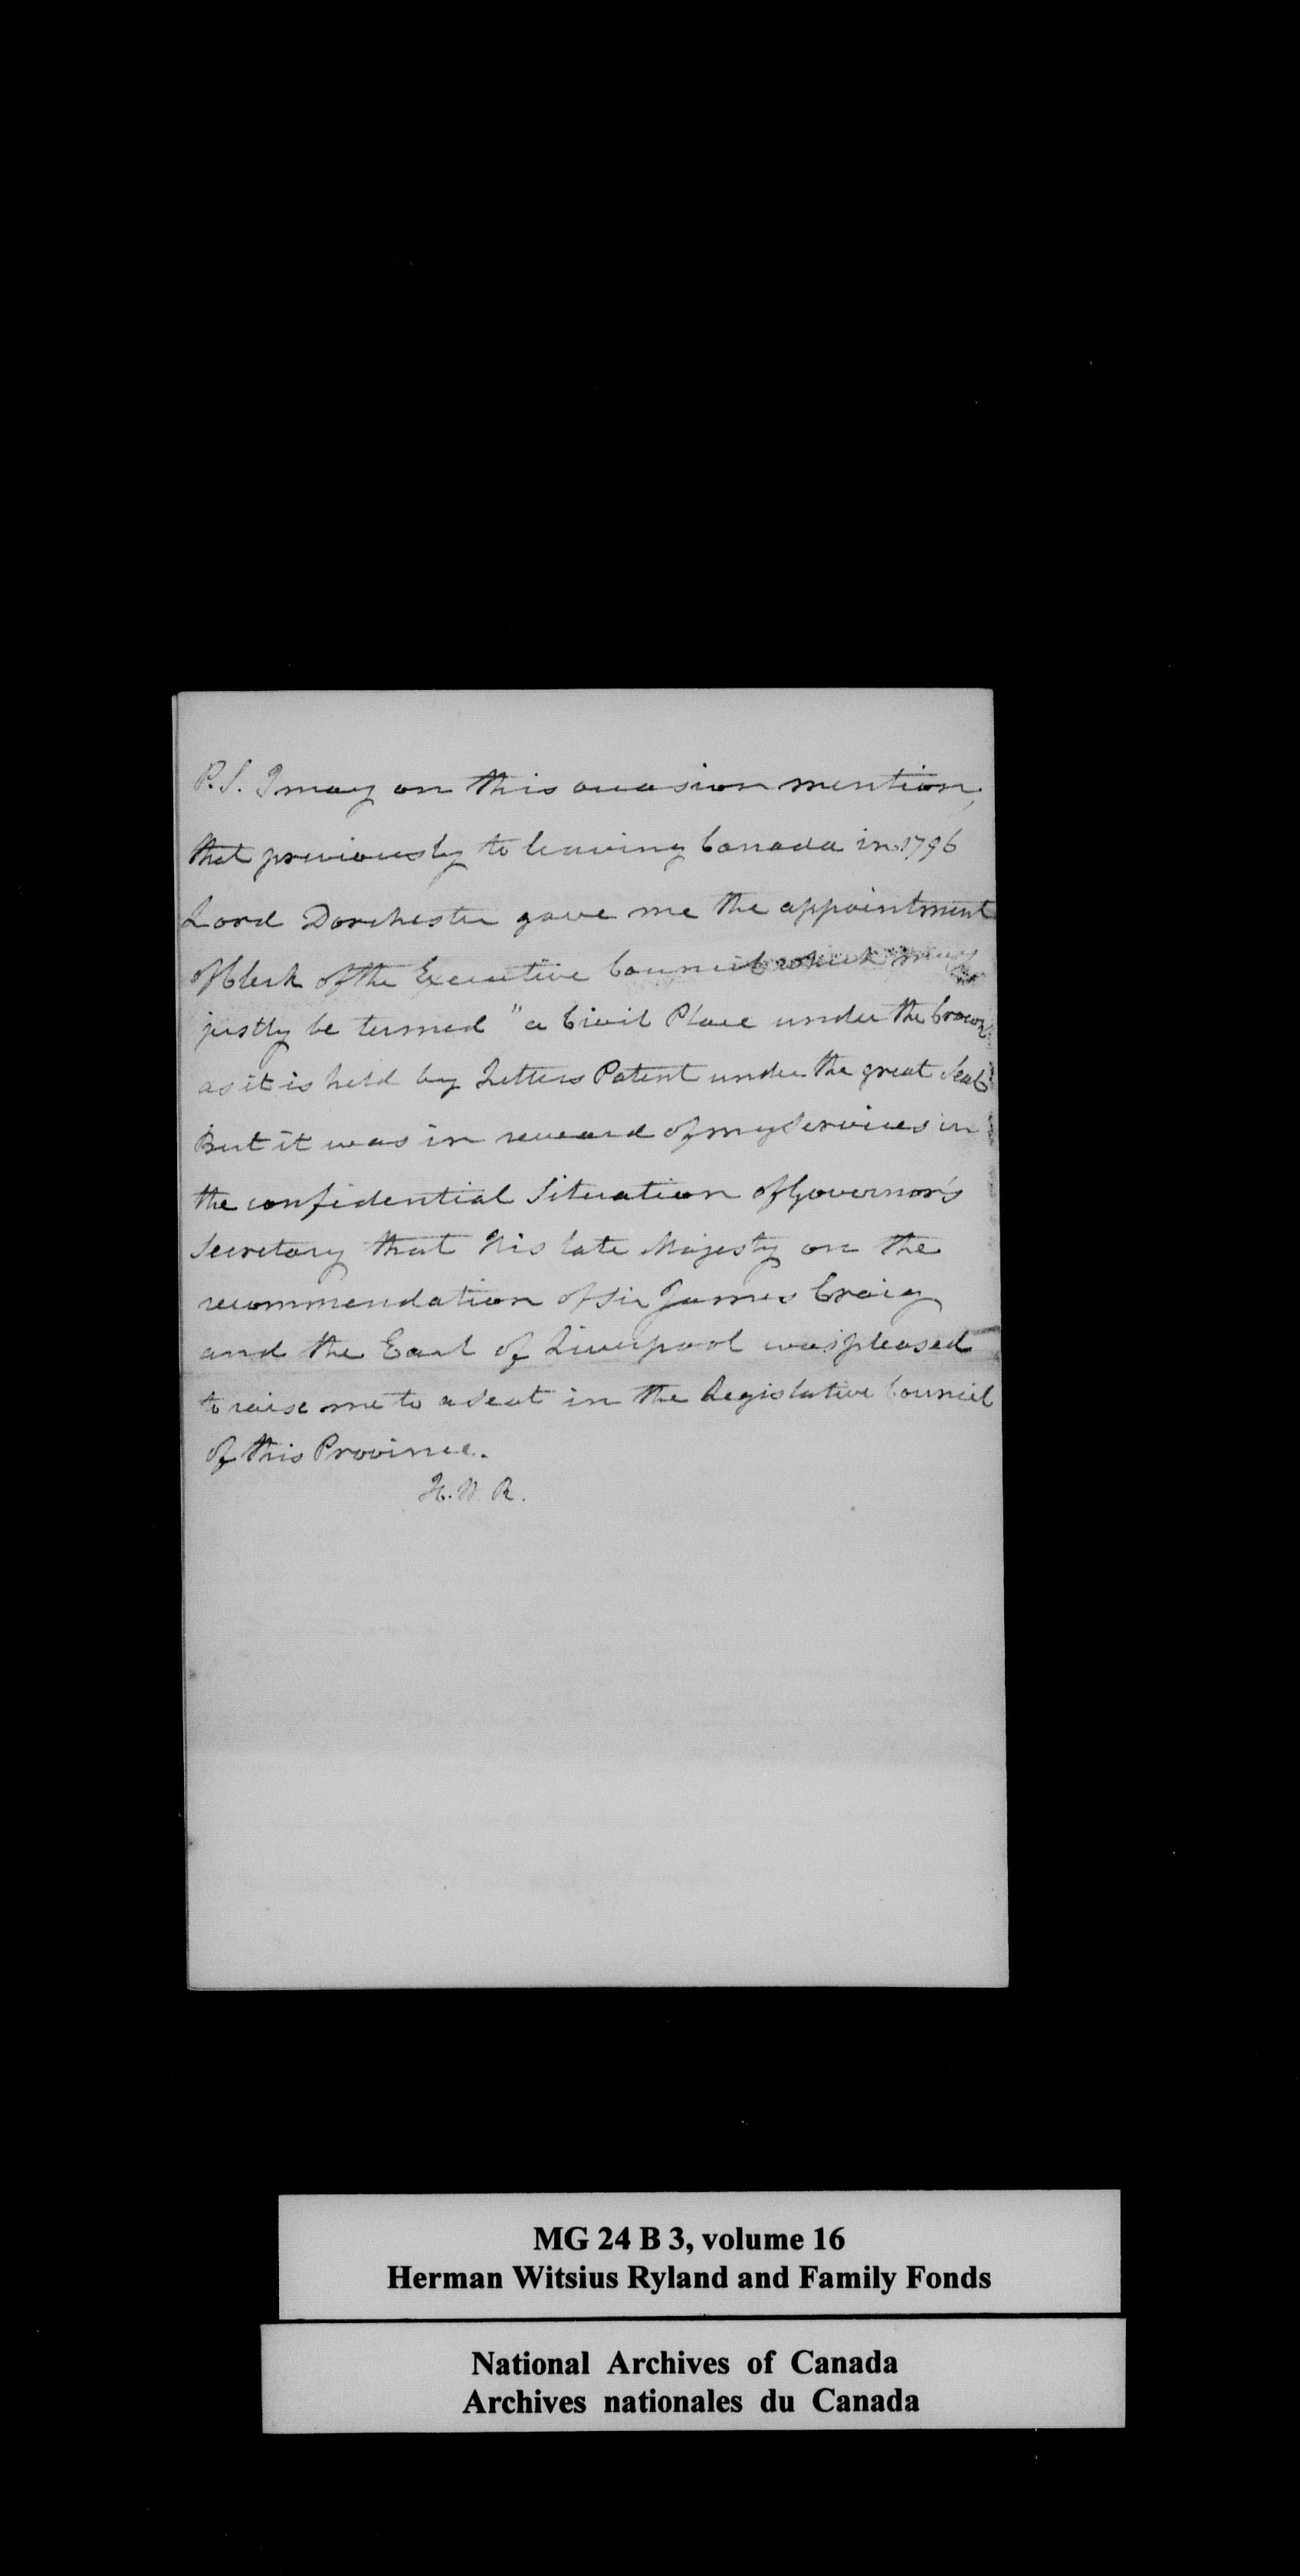 P.S. I may on this occasion mention,
that previously to leaving Canada in 1796
Lord Dorchester gave me the appointment
of Clerk of the Executive Council which may
justly be termed "a Civil Place under the Crown
as it is held by Letters Patent under the great Seal
But it was in reward of my Services in
the confidential Situation of Governor's
Secretary that His late Majesty on the
recommendation of Sir James Craig
and the Earl of Liverpool was pleased
to raise me to a Seat in the Legislative Council
of this Province.
H.W.R.
MG 24 B 3, volume 16
Herman Witsius Ryland and Family Fonds
National Archives of Canada
Archives nationales du Canada